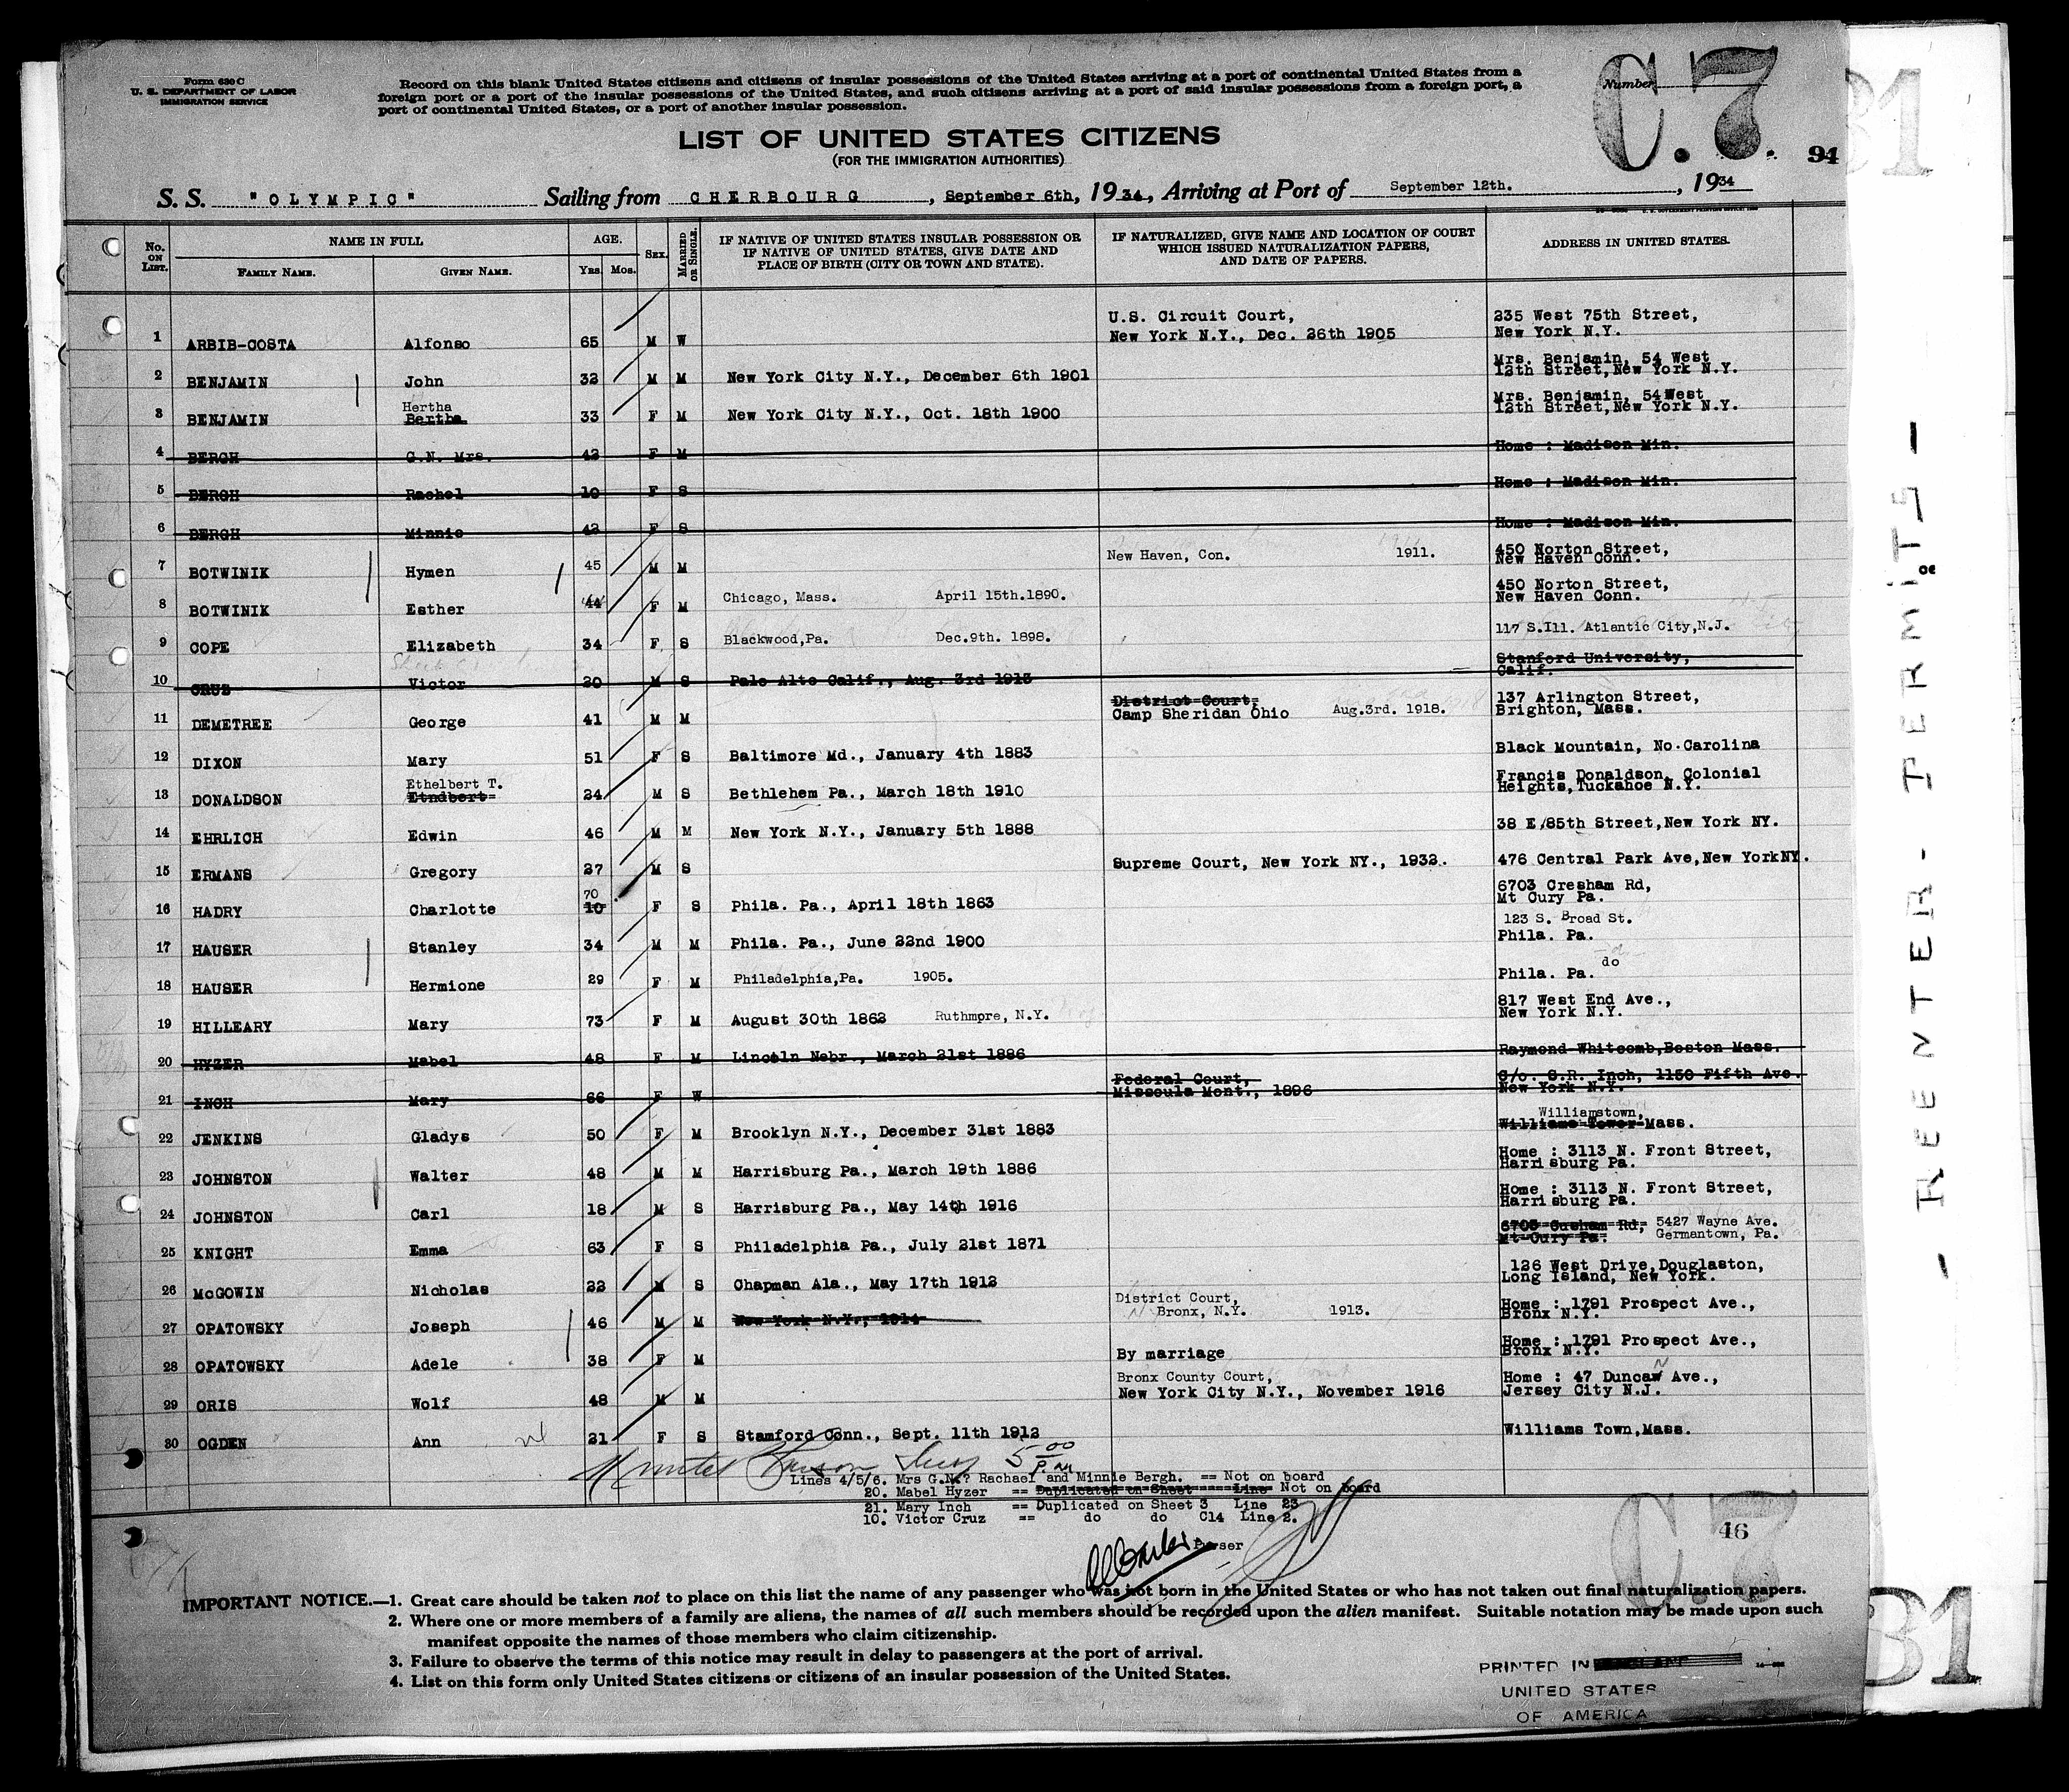 Form 630 C
U. S. DEPARTMENT OF LABOR
IMMIGRATION SERVICE
Record on this blank United States citizens and citizens of insular possessions of the United States arriving at a port of continental United States from a
foreign port or a port of the insular possessions of the United States, and such citizens arriving at a port of said insular possessions from a foreign port, a
port of continental United States, or a port of another insular possession.
Number
C.7.
94
LIST OF UNITED STATES CITIZENS
(FOR THE IMMIGRATION AUTHORITIES)
S. S. "OLYMPIC" Sailing from CHERBOURG, September 6th, 1934, Arriving at Port of September 12th., 1934
No. ON LIST. NAME IN FULL AGE. SEX. MARRIED OR SINGLE. IF NATIVE OF UNITED STATES INSULAR POSSESSION OR IF NATIVE OF UNITED STATES, GIVE DATE AND PLACE OF BIRTH (CITY OR TOWN AND STATE). IF NATURALIZED, GIVE NAME AND LOCATION OF COURT WHICH ISSUED NATURALIZATION PAPERS, AND DATE OF PAPERS. ADDRESS IN UNITED STATES.
FAMILY NAME. GIVEN NAME. Yrs. Mos.
1 ARBIB-COSTA Alfonso 65 M W U.S. Circuit Court, New York N.Y., Dec. 26th 1905 235 West 75th Street, New York N.Y.
2 BENJAMIN John 32 M M New York City N.Y., December 6th 1901 Mrs. Benjamin, 54 West 12th Street, New York N.Y.
3 BENJAMIN Hertha Bertha 33 F M New York City N.Y., Oct. 18th 1900 Mrs. Benjamin, 54 West 12th Street, New York N.Y.
4 BERGH G.N. Mrs. 42 F M Home : Madison Min.
5 BERGH Rachel 10 F S Home : Madison Min.
6 BERGH Minnie 42 F S Home : Madison Min.
7 BOTWINIK Hymen 45 M M New Haven, Con. 1911. 450 Norton Street, New Haven Conn.
8 BOTWINIK Esther 44 F M Chicago, Mass. April 15th.1890. 450 Norton Street, New Haven Conn.
9 COPE Elizabeth 34 F S Blackwood,Pa. Dec.9th. 1898. 117 S.Ill. Atlantic City,N.J.
10 CRUZ Victor 20 M S Palo Alto Calif., Aug. 3rd 1913 Stanford University, Calif.
11 DEMETREE George 41 M M District Court, Camp Sheridan Ohio Aug.3rd. 1918. 137 Arlington Street, Brighton, Mass.
12 DIXON Mary 51 F S Baltimore Md., January 4th 1883 Black Mountain, No.Carolina
13 DONALDSON Ethelbert T. Etndbert 24 M S Bethlehem Pa., March 18th 1910 Francis Donaldson, Colonial Heights,Tuckahoe N.Y.
14 EHRLICH Edwin 46 M M New York N.Y., January 5th 1888 38 E/85th Street,New York NY.
15 ERMANS Gregory 27 M S Supreme Court, New York NY., 1932. 476 Central Park Ave,New YorkNY.
16 HADRY Charlotte 70 10 F S Phila. Pa., April 18th 1863 6703 Cresham Rd, Mt Cury Pa.
17 HAUSER Stanley 34 M M Phila. Pa., June 22nd 1900 123 S. Broad St. Phila. Pa.
18 HAUSER Hermione 29 F M Philadelphia,Pa. 1905. do Phila. Pa.
19 HILLEARY Mary 73 F M August 30th 1862 Ruthmore, N.Y. 817 West End Ave., New York N.Y.
20 HYZER Mabel 48 F M Lincoln Nebr., March 21st 1886 Raymond Whitcomb,Boston Mass.
21 INCH Mary 66 F W Federal Court, Missoula Mont., 1896 C/o. S.R. Inch, 1150 Fifth Ave. New York N.Y.
22 JENKINS Gladys 50 F M Brooklyn N.Y., December 31st 1883 Williamstown, Williams Tower Mass.
23 JOHNSTON Walter 48 M M Harrisburg Pa., March 19th 1886 Home : 3113 N. Front Street, Harrisburg Pa.
24 JOHNSTON Carl 18 M S Harrisburg Pa., May 14th 1916 Home : 3113 N. Front Street, Harrisburg Pa.
25 KNIGHT Emma 63 F S Philadelphia Pa., July 21st 1871 6703 Cusham Rd, Mt Cury Pa. 5427 Wayne Ave. Germantown, Pa.
26 McGOWIN Nicholas 22 M S Chapman Ala., May 17th 1912 126 West Drive,Douglaston, Long Island, New York.
27 OPATOWSKY Joseph 46 M M New York N.Y., 1914 District Court, Bronx, N.Y. 1913. Home : 1791 Prospect Ave., Bronx N.Y.
28 OPATOWSKY Adele 38 F M By marriage Home : 1791 Prospect Ave., Bronx N.Y.
29 ORIS Wolf 48 M M Bronx County Court, New York City N.Y., November 1916 Home : 47 Duncan Ave., Jersey City N.J.
30 OGDEN Ann 21 F S Stamford Conn., Sept. 11th 1912 Williams Town,Mass.
5 00 P.M
Lines 4/5/6. Mrs G.N.? Rachael and Minnie Bergh. == Not on board
20. Mabel Hyzer == Duplicated on Sheet Line Not on board
21. Mary Inch == Duplicated on Sheet 3 Line 23
10. Victor Cruz == do do C14 Line 2.
Purser
C.7.
46
IMPORTANT NOTICE.—1. Great care should be taken not to place on this list the name of any passenger who was not born in the United States or who has not taken out final naturalization papers.
2. Where one or more members of a family are aliens, the names of all such members should be recorded upon the alien manifest. Suitable notation may be made upon such
manifest opposite the names of those members who claim citizenship.
3. Failure to observe the terms of this notice may result in delay to passengers at the port of arrival.
4. List on this form only United States citizens or citizens of an insular possession of the United States.
PRINTED IN ENGLAND
UNITED STATES
OF AMERICA
- REENTER- PERMITS -
31
31